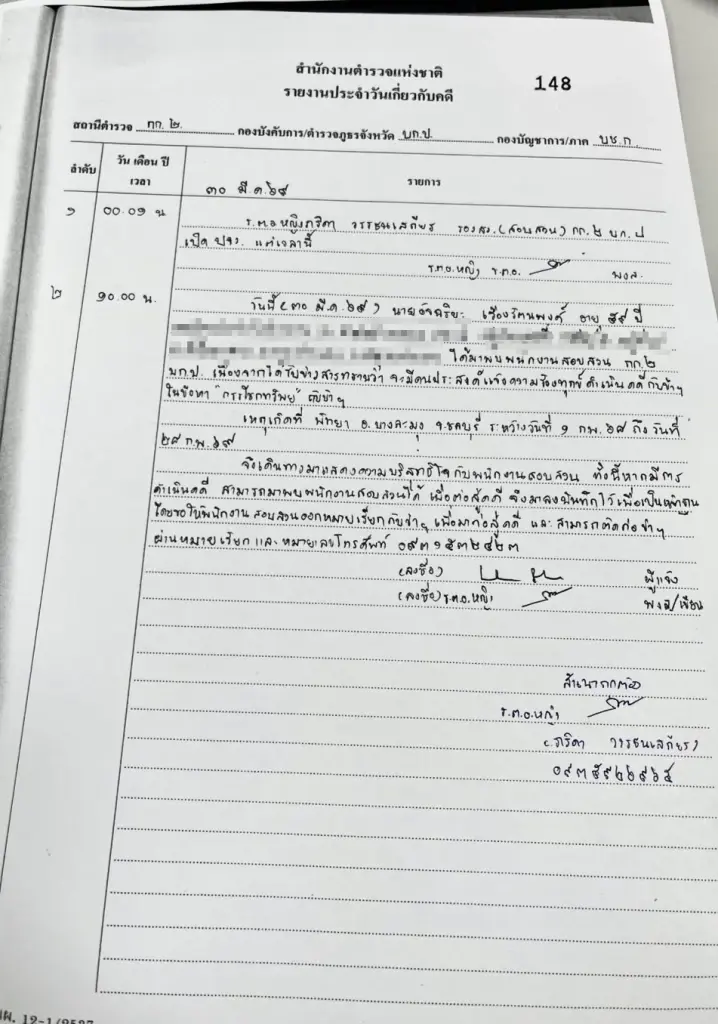 สำนักงานตำรวจแห่งชาติ
รายงานประจำวันเกี่ยวกับคดี
148
สถานีตำรวจ กก.๒ กองบังคับการ/ตำรวจภูธรจังหวัด บก.ป. กองบัญชาการ/ภาค บช.ก.
ลำดับ
วัน เดือน ปี
เวลา
รายการ
๓๐ มี.ค.๖๙
๑ ๐๐.๐๑ น. ร.ต.อ.หญิง วรรธนเสถียร รอง สว.(สอบสวน) กก.๒ บก.ป
เปิด ปจว. แต่เวลานี้
ร.ต.อ.หญิง ร.ต.อ. พงส.
๒ ๑๐.๐๐ น. วันนี้ (๓๐ มี.ค.๖๙) นายอัจฉริยะ เรืองรัตนพงศ์ อายุ ๕๙ ปี
ได้มาพบพนักงานสอบสวน กก.๒
บก.ป. เนื่องจากได้รับข่าวสารทราบว่า จะมีคนประสงค์แจ้งความร้องทุกข์ดำเนินคดีกับข้าฯ
ในข้อหา "กรรโชกทรัพย์" กับข้าฯ
เหตุเกิดที่ พัทยา อ.บางละมุง จ.ชลบุรี ระหว่างวันที่ ๑ กพ.๖๙ ถึงวันที่
๒๙ ก.พ.๖๙
จึงเดินทางมาแสดงความบริสุทธิ์ใจกับพนักงานสอบสวน ทั้งนี้หากมีการ
ดำเนินคดี สามารถมาพบพนักงานสอบสวนได้ เพื่อต่อสู้คดี จึงมาลงบันทึกไว้เพื่อเป็นหลักฐาน
โดยขอให้พนักงานสอบสวนออกหมายเรียกกับข้าฯ เพื่อมาต่อสู้คดี และสามารถติดต่อข้าฯ
ผ่านหมายเรียกและหมายเลขโทรศัพท์ ๐๙๓๑๕๓๒๔๒๓
(ลงชื่อ) ผู้แจ้ง
(ลงชื่อ) ร.ต.อ.หญิง พงส/เขียน
สำเนาถูกต้อง
ร.ต.อ.หญิง
๐๙๓๕๙๒๒๑๖๕